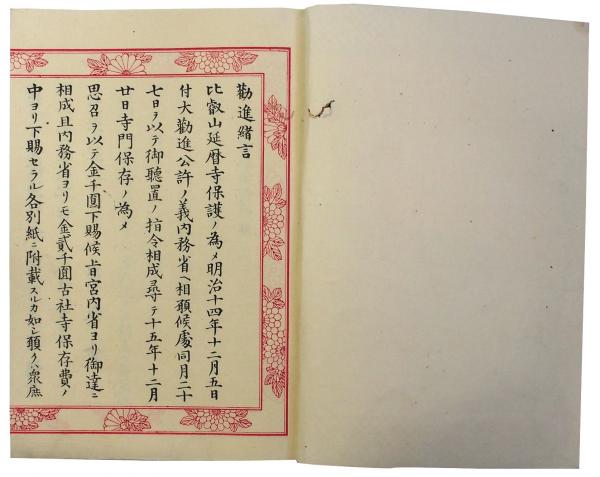 勸進緒言
比叡山延暦寺保護ノ為メ明治十四年十二月五日
付大勸進公許ノ義内務省ヘ相願候處同月二十
七日ヲ以テ御聽置ノ指令相成尋テ十五年十二月
廿日寺門保存ノ為メ
思召ヲ以テ金千圓下賜候旨宮内省ヨリ御達ニ
相成且内務省ヨリモ金貳千圓古社寺保存費ノ
中ヨリ下賜セラル各別紙ニ附載スルカ如シ願クハ衆庶